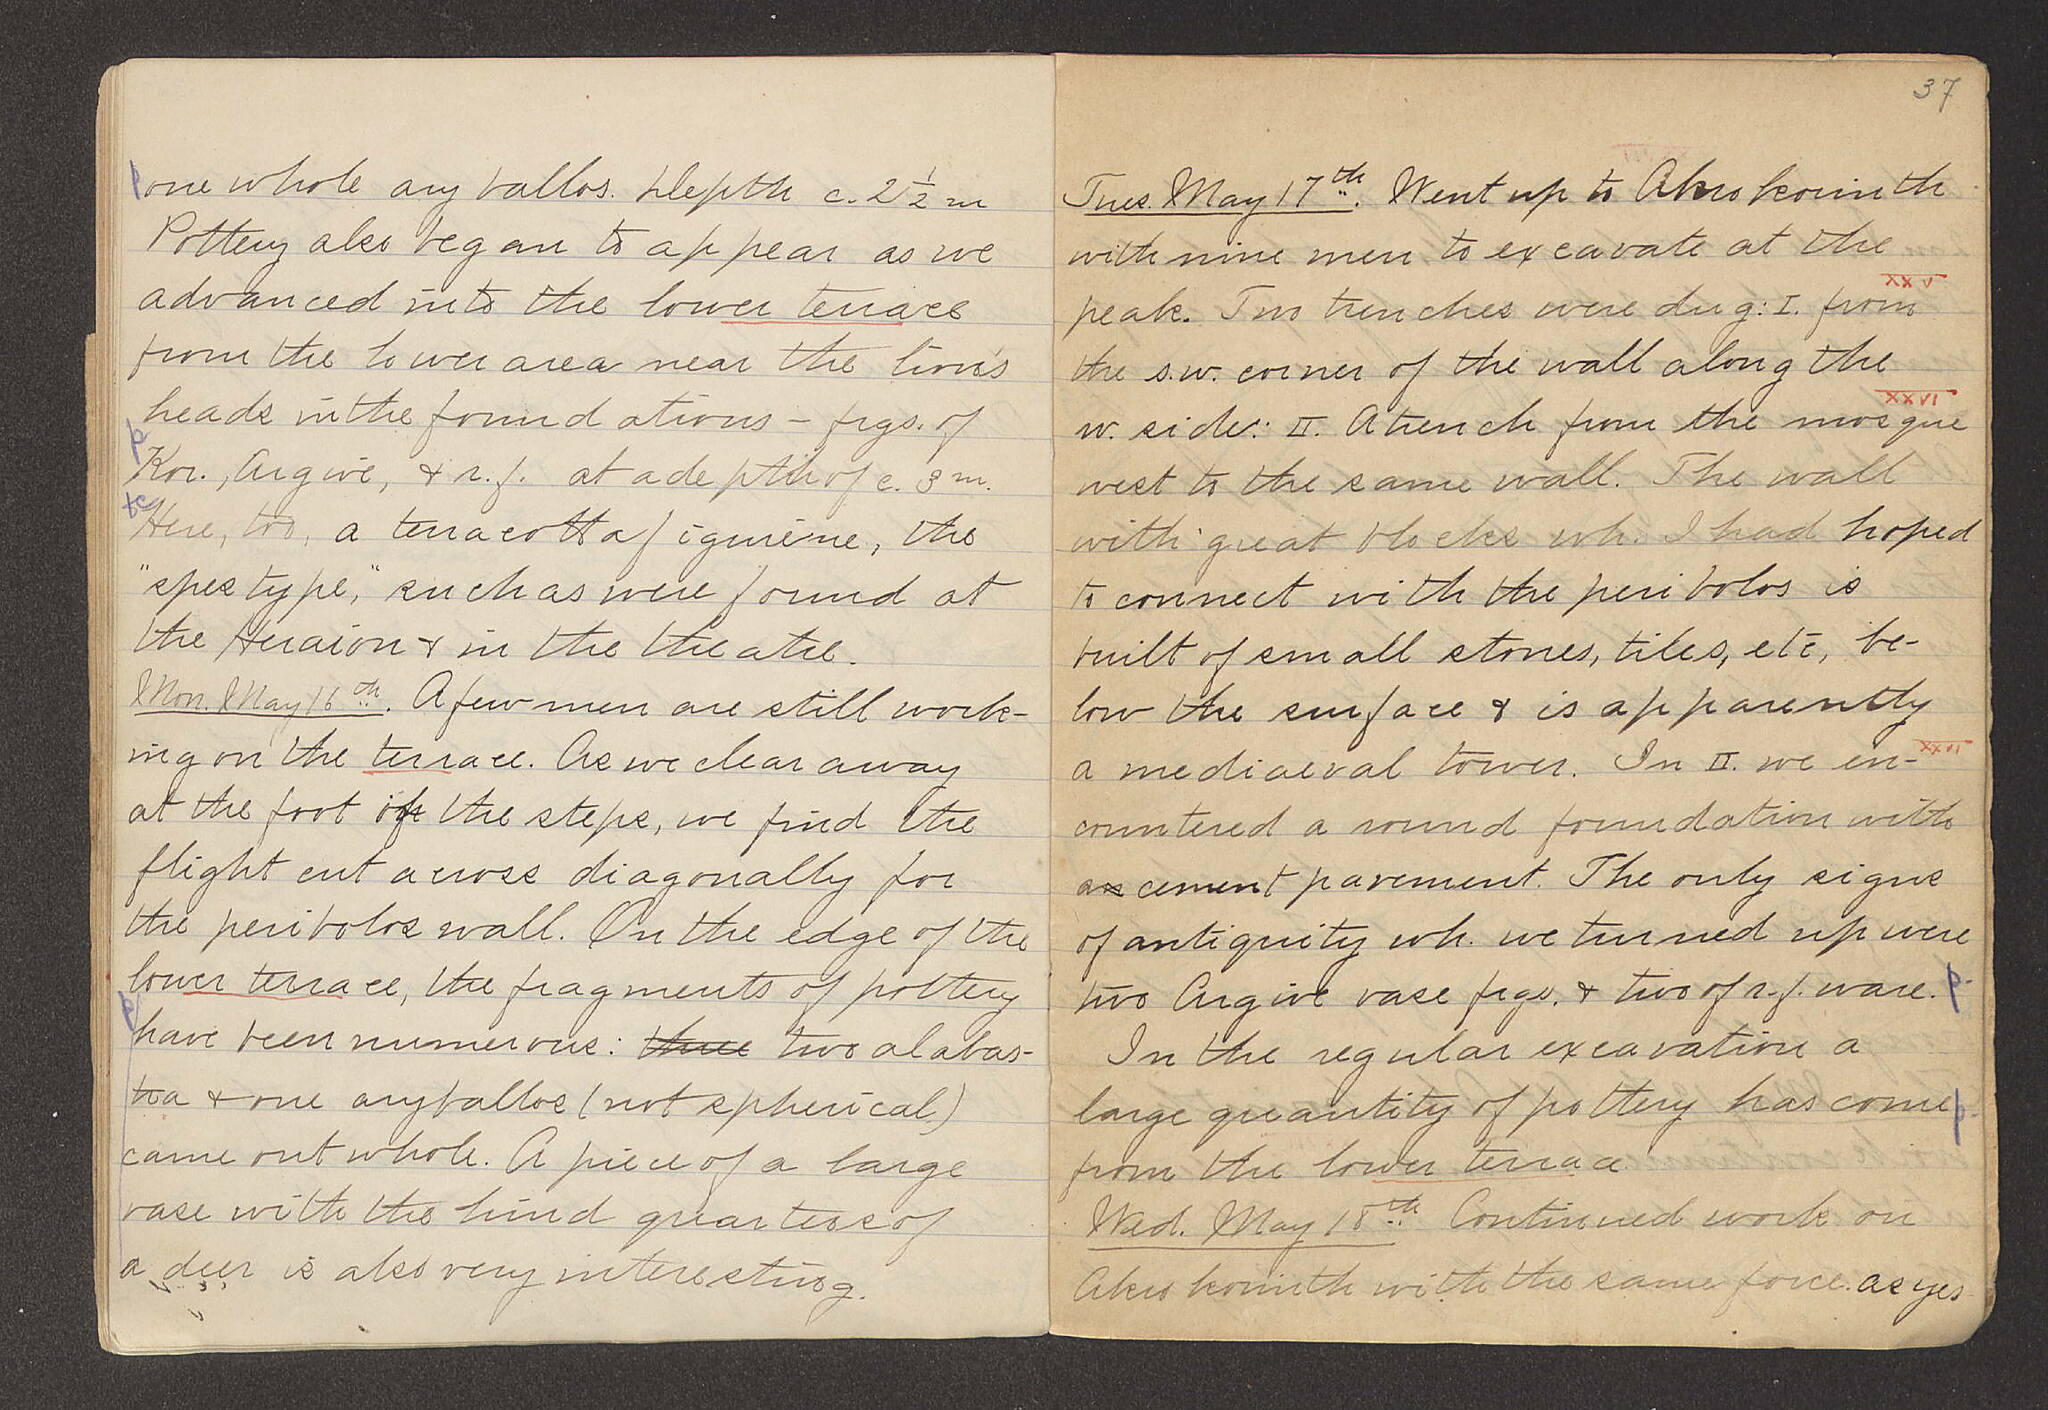 p one whole aryballos. Depth c. 2 1/2 m
Pottery also began to appear as we
advanced into the lower terrace
from the lower area near the lion's
heads in the foundations – frgs. of
p
Kor., Argive, & r.f. at a depth of c. 3 m.
tc
Here, too, a terracotta figurine, the
"spes type," such as were found at
the Heraion & in the theatre.
Mon. May 16th. A few men are still work-
ing on the terrace. As we clear away
at the foot of the steps, we find the
flight cut across diagonally for
the peribolos wall. On the edge of the
lower terrace, the fragments of pottery
p
have been numerous: three two alabas-
tra & one aryballos (not spherical)
came out whole. A piece of a large
vase with the hind quarters of
a deer is also very interesting.
37
Tues. May 17th. Went up to Akrokorinth
with nine men to excavate at the
XXV
peak. Two trenches were dug: I. from
the s.w. corner of the wall along the
XXVI
w. side: II. A trench from the mosque
west to the same wall. The wall
with great blocks wh. I had hoped
to connect with the peribolos is
built of small stones, tiles, etc, be-
low the surface & is apparently
a mediaeval tower. In II. we en- XXVI
countered a round foundation with
a cement pavement. The only signs
of antiquity wh. we turned up were
two Argive vase frgs. & two of r.f. ware. p.
In the regular excavation a
large quantity of pottery has come p.
from the lower terrace
Wed. May 18th. Continued work on
Akrokorinth with the same force as yes